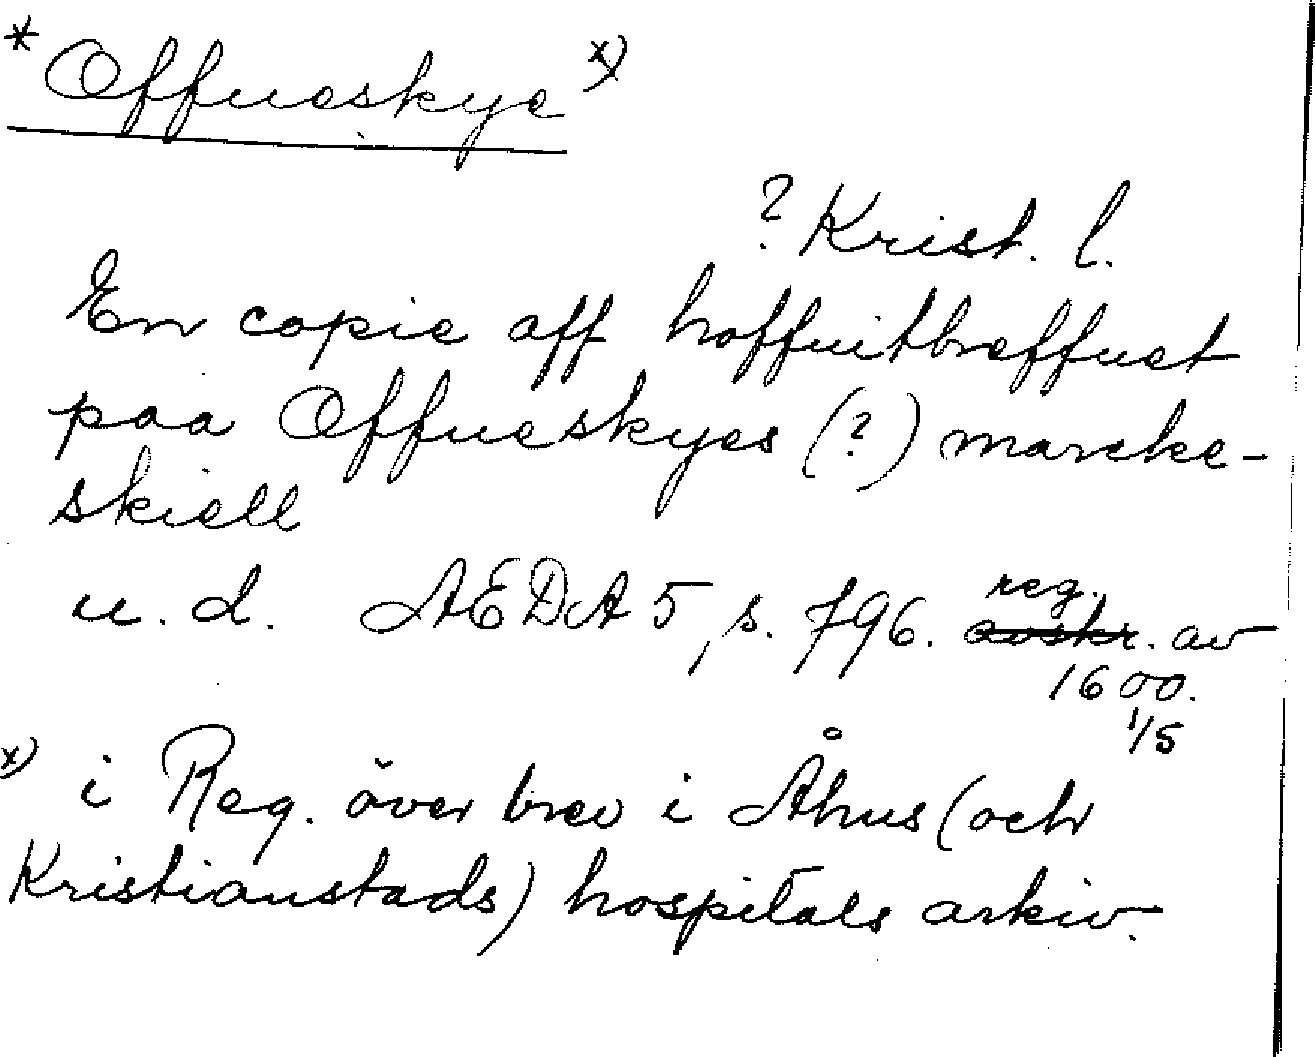 * Offueskye x)
? Krist. l.
En copie aff hoffuitbreffuet
paa Offueskyes (?) marcke-
skiell
u. d. AEDA 5, s. 796. reg. avskr. av
1600.
1/5
x) i Reg. över brev i Åhus (och
Kristianstads) hospitals arkiv.